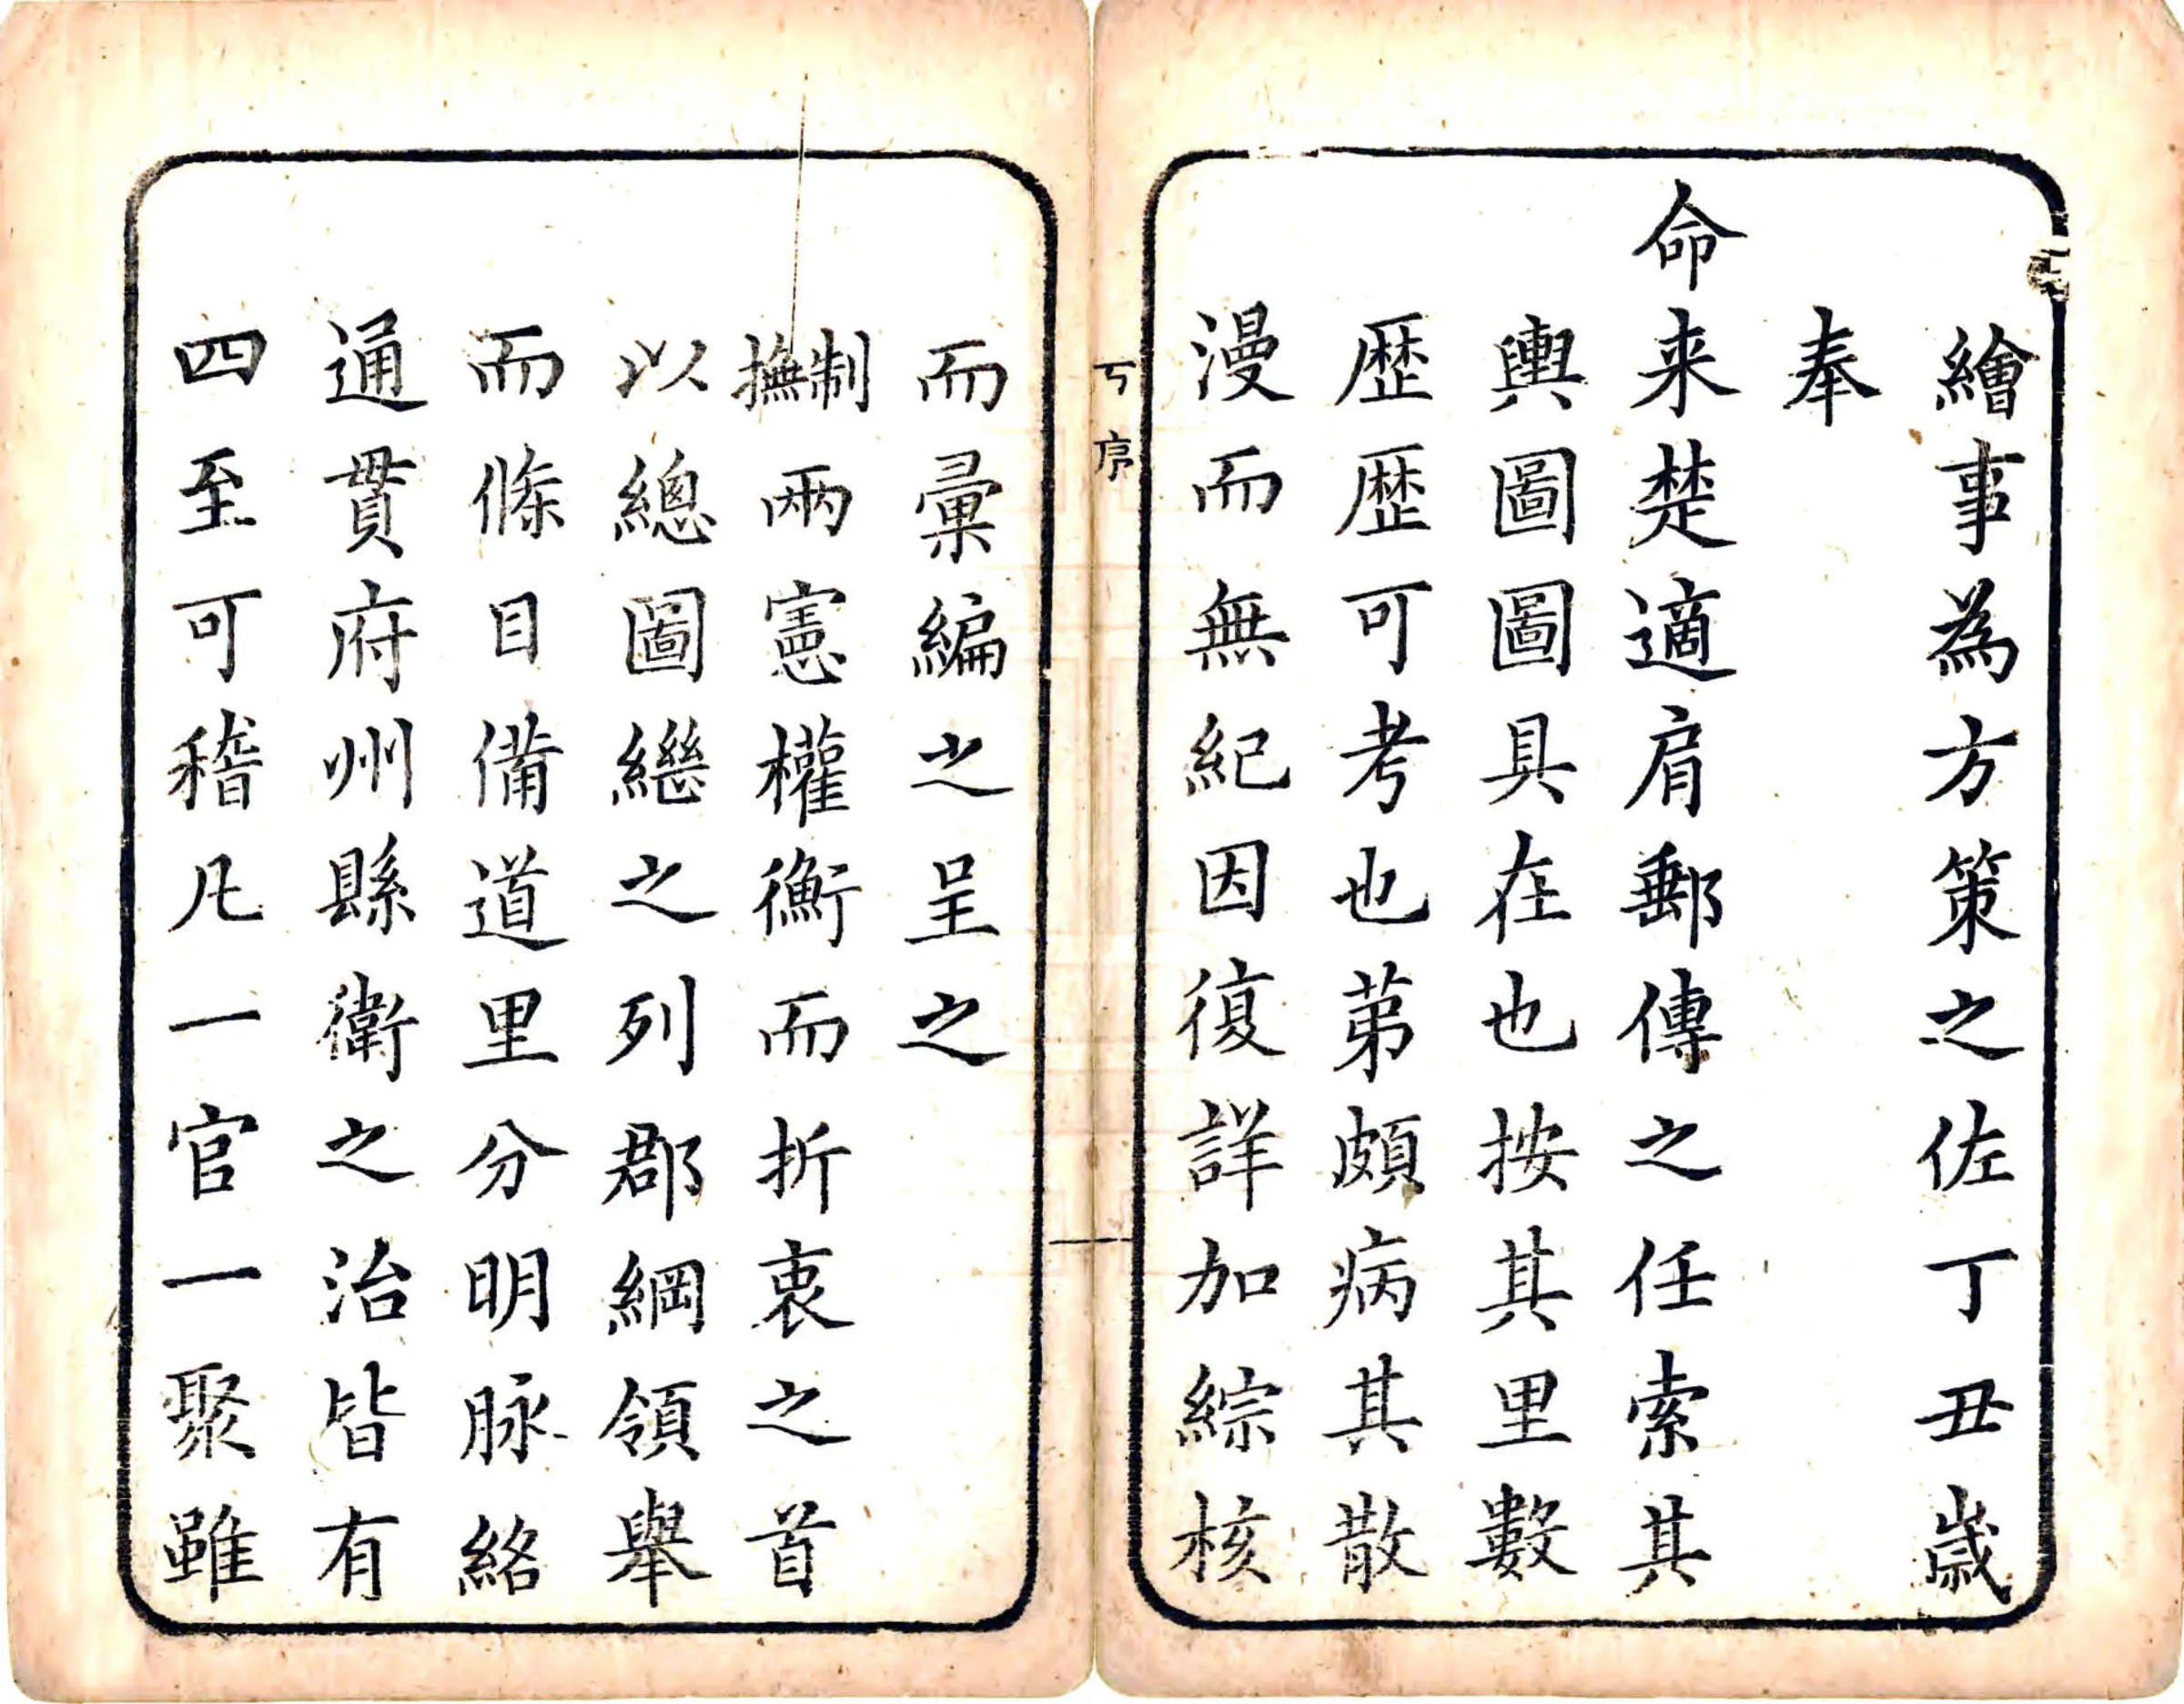 繪事為方策之佐丁丑歲
奉
命来楚適肩郵傳之任索其
輿圖圖具在也按其里數
歴歴可考也苐頗病其散
漫而無紀因復詳加綜核
序
而彙編之呈之
制撫兩憲權衡而折衷之首
以總圖繼之列郡綱領舉
而條目備道里分明脉絡
通貫府州縣衛之治皆有
四至可稽凡一官一聚雖